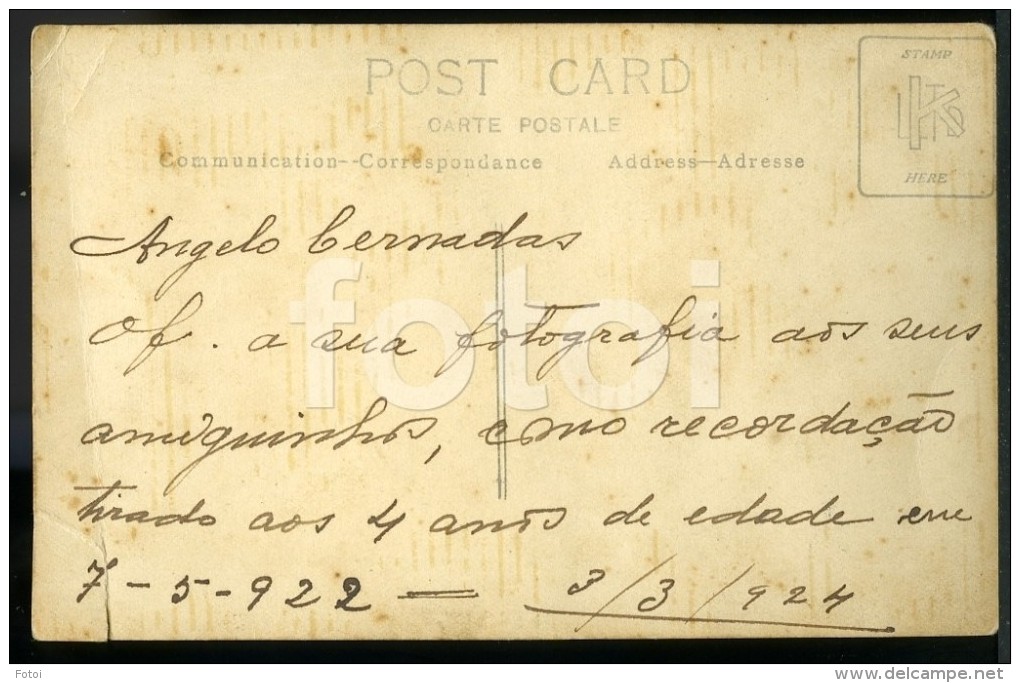 POST CARD
CARTE POSTALE
Communication--Correspondance Address—Adresse
STAMP
HERE
Angelo Cernadas
Of. a sua fotografia aos seus
amiguinhos, como recordação
tirado aos 4 anos de edade em
7-5-922 — 3/3/924
fotoi
Fotoi
delcampe.net